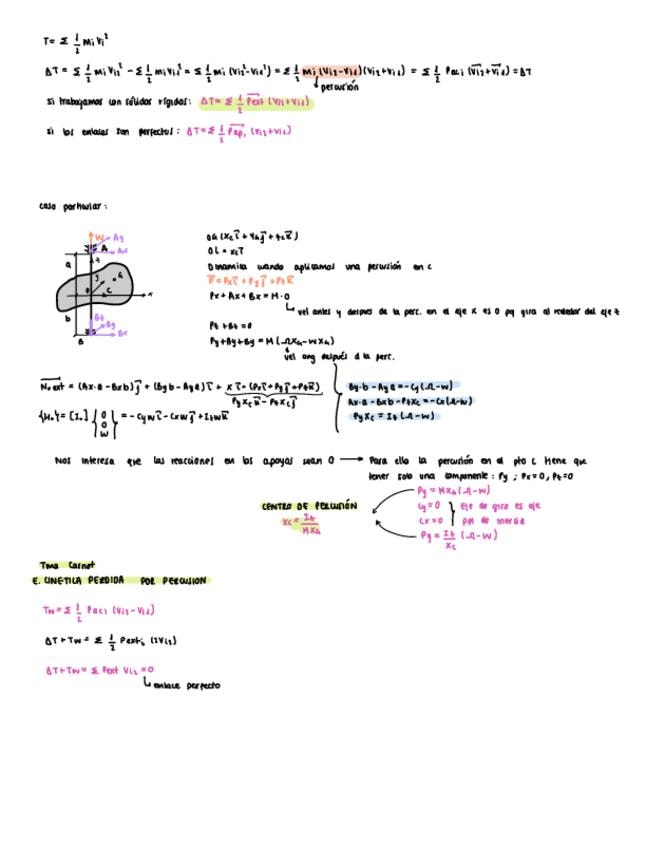 T = Σ 1/2 mi Vi²
ΔT = Σ 1/2 mi Vi2² - Σ 1/2 mi Vi1² = Σ 1/2 mi (Vi2² - Vi1²) = Σ 1/2 mi (Vi2 - Vi1)(Vi2 + Vi1) = Σ 1/2 Paci (Vi2 + Vi1) = ΔT
percusión
si trabajamos con sólidos rígidos: ΔT = Σ 1/2 Pext (Vi2 + Vi1)
si los enlaces son perfectos: ΔT = Σ 1/2 Pap, (Vi2 + Vi1)
caso particular:
W Ay
A Ax
a
z
y G
O C x
b
Bz
By
B Bx
OG (XG i + YG j + ZG k)
OC = xc i
Dinamica cuando aplicamos una percusión en c
P = Px i + Py j + Pz k
Px + Ax + Bx = M·0
vel antes y despues de la perc. en el eje x es 0 pq gira alrededor del eje z
Pz + Bz = 0
Py + Ay + By = M (ΩXG - wXG)
vel ang después d la perc.
No ext = (Ax·a - Bx b) j + (By b - Ay a) i + x i · (Px i + Py j + Pz k)
Py Xc k - Pz Xc j
{Ho} = [Io] {0 0 w} = -Cy w i - Cx w j + Iz w k
By·b - Ay a = -Cy (Ω - w)
Ax·a - Bx b - Pz Xc = -Cx (Ω - w)
Py Xc = Iz (Ω - w)
Nos interesa que las reacciones en los apoyos sean 0 → Para ello la percusión en el pto C tiene que
tener solo una componente: Py ; Px = 0, Pz = 0
CENTRO DE PERCUSIÓN
Xc = Iz / MXG
Py = MXG (Ω - w)
Cy = 0
Cx = 0
Eje de giro es eje
ppl de inercia
Py = Iz / Xc (Ω - w)
Tma Carnot
E. CINETICA PERDIDA POR PERCUSION
Tw = Σ 1/2 Paci (Vi2 - Vi1)
ΔT + Tw = Σ 1/2 Pext, (2Vi2)
ΔT + Tw = Σ Pext Vi2 = 0
enlace perfecto